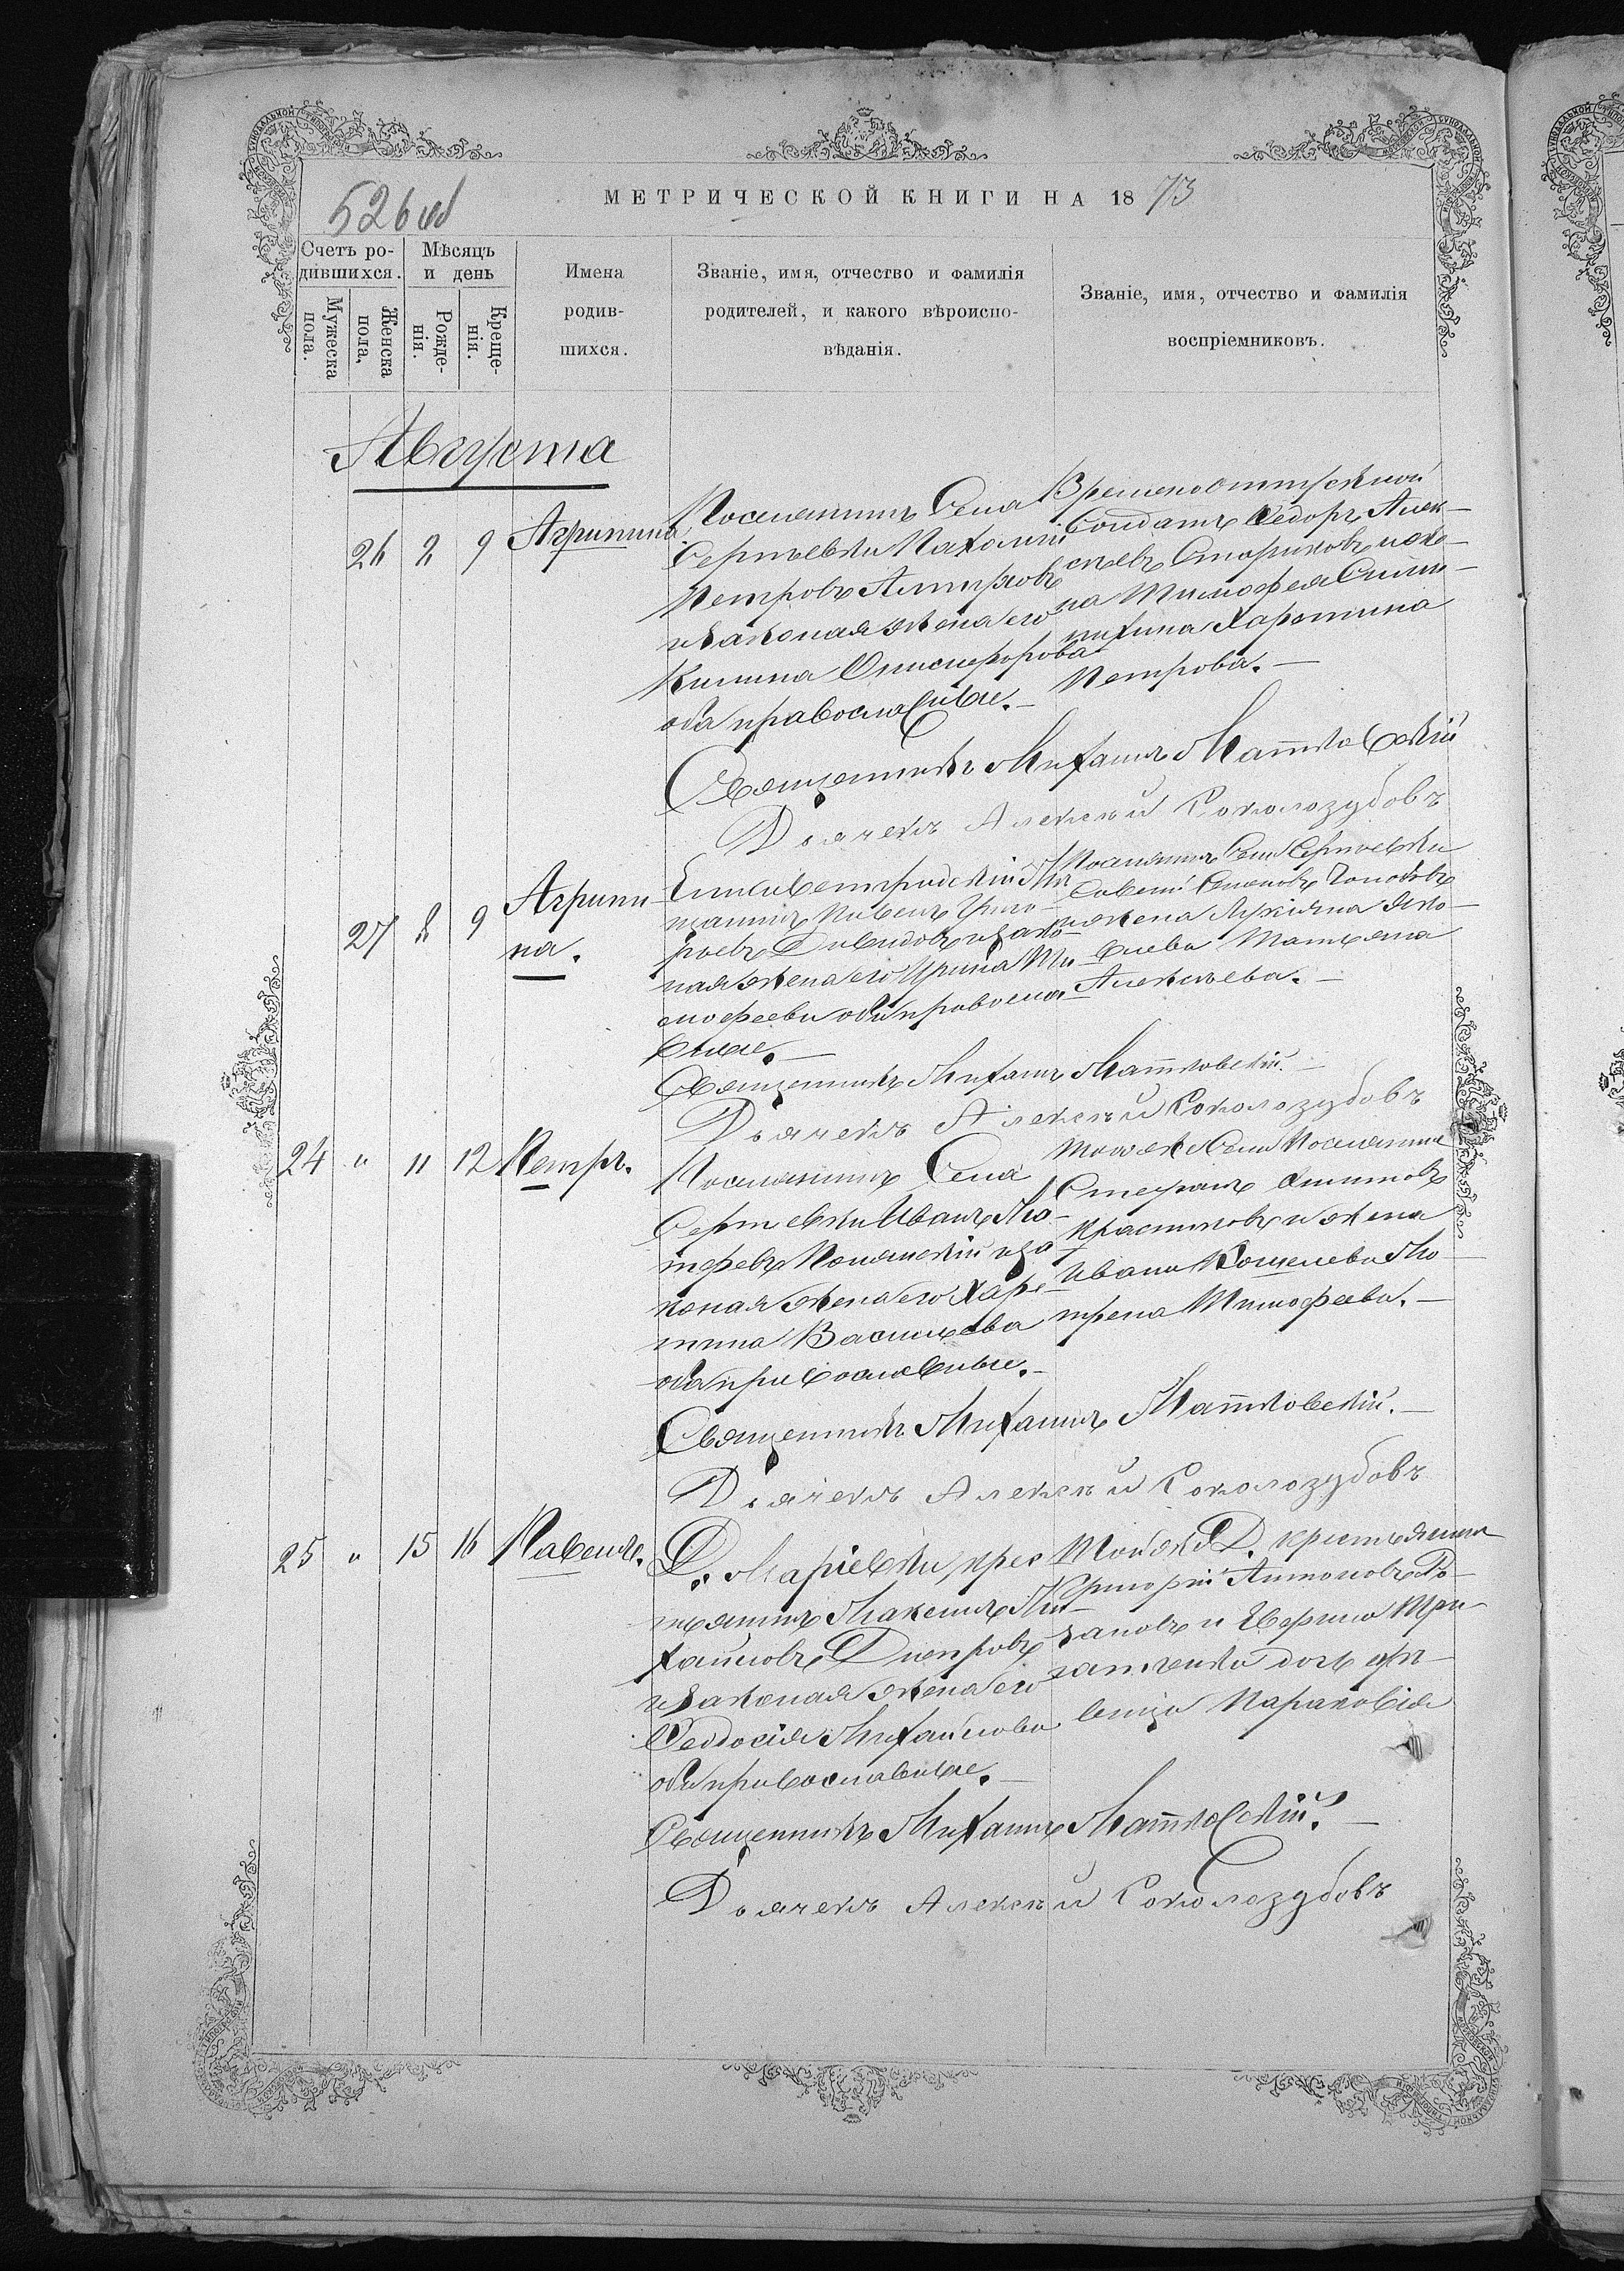 526 об
МЕТРИЧЕСКОЙ КНИГИ НА 1873
Счетъ ро-
дившихся.
Мужеска
пола.
Женска
пола.
Мѣсяцъ
и день
Рожде-
нія.
Креще-
нія.
Имена
родив-
шихся.
Званіе, имя, отчество и фамилія
родителей, и какого вѣроиспо-
вѣданія.
Званіе, имя, отчество и фамилія
воспріемниковъ.
Августа
26 2 9 Агрипина.
Поселянинъ Села
Сергѣевки Пахомій
Петровъ
и законая жена его
Онисифорова
оба православные.
Временоотпускной
Солдатъ Ѳедоръ Алек-
сѣевъ Стариковъ и же-
на Тимофея
Харетина
Петрова.
Священникъ Михаилъ Матковскій
Дьячекъ Алексѣй Соколозубовъ
27 8 9 Агрипи-
на.
Елисаветградскій Мѣ-
щанинъ Павелъ Григо-
рьевъ Давидовъ и зако-
ная жена его Ирина Ти-
мофеева оба правосла-
вные.
Поселянинъ Села Сергѣевки
Савелій Семеновъ
и жена Лукіяна Яко-
влева Татьяна
Алексѣева.
Священникъ Михаилъ Матковскій.
Дьячекъ Алексѣй Соколозубовъ
24 " 11 12 Петръ.
Поселянинъ Села
Сергѣевки Иванъ
и за-
коная жена его Харе-
тина Васильева
оба православные.
Тогоже Села Поселянинъ
Стефанъ
и жена
Ивана Кошелева Ма-
трена Тимофеева.
Священникъ Михаилъ Матковскій.
Дьячекъ Алексѣй Соколозубовъ
25 " 15 16 Павелъ.
Д. Маріевки крес-
тьянинъ Максимъ Ми-
хайловъ Днепровъ
и законая жена его
Феодосія Михайлова
оба православные.
Тойже Д. крестьянинъ
Григорій Антоновъ Ро-
зановъ и
дочь дѣ-
вица Параковія
Священникъ Михаилъ Матковскій.
Дьячекъ Алексѣй Соколозубовъ